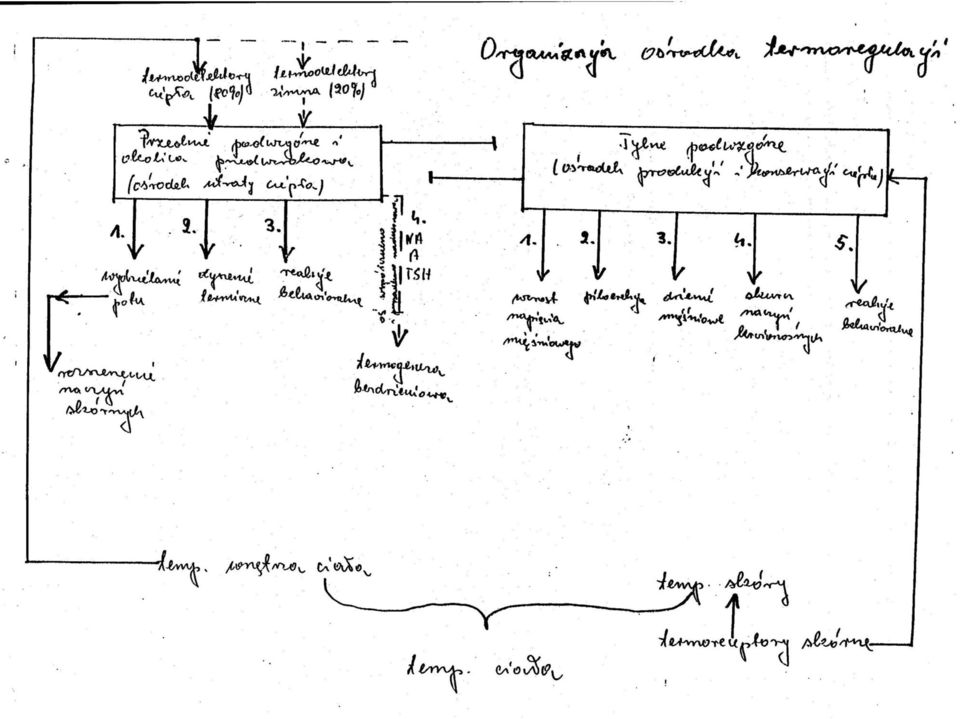 Organizacja ośrodka termoregulacji
termodetektory
ciepła (80%)
termodetektory
zimna (20%)
Przednie podwzgórze i
okolica przedwzrokowa
(ośrodek utraty ciepła)
Tylne podwzgórze
(ośrodek produkcji i konserwacji ciepła)
1.
2.
3.
4.
NA
A
TSH
wydzielanie
potu
dyszenie
termiczne
reakcje
behawioralne
oś współczulno
rozszerzenie
naczyń
skórnych
termogeneza
bezdrżeniowa
1.
2.
3.
4.
5.
wzrost
napięcia
mięśniowego
piloerekcja
drżenie
mięśniowe
skurcz
naczyń
krwionośnych
reakcje
behawioralne
temp. wnętrza ciała
temp. skóry
termoreceptory skórne
temp. ciała